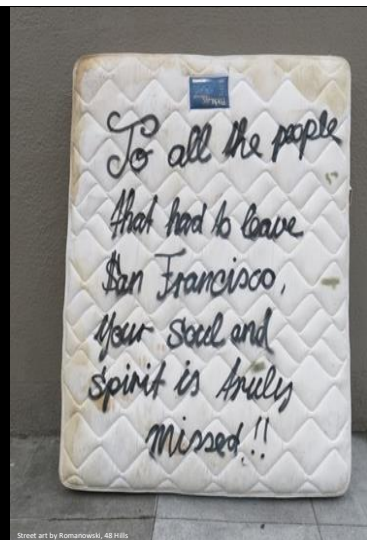 To all the people
that had to leave
San Francisco,
Your Soul and
spirit is truly
missed!!
Street art by Romanowski, 48 Hills